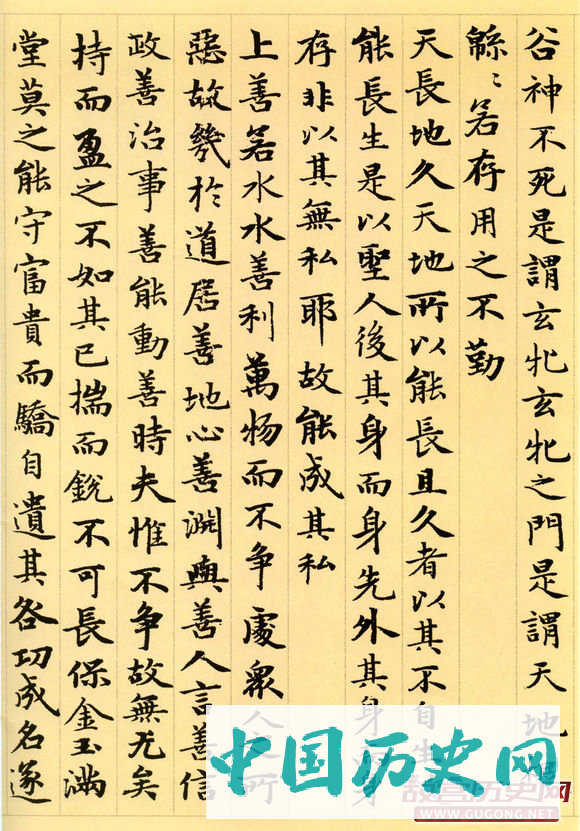 谷神不死是謂玄牝玄牝之門是謂天地
緜〻若存用之不勤
天長地久天地所以能長且久者以其不自生
能長生是以聖人後其身而身先外其身而身
存非以其無私耶故能成其私
上善若水水善利萬物而不争處衆人之所
惡故幾於道居善地心善淵與善人言善信
政善治事善能動善時夫惟不争故無尤矣
持而盈之不如其已揣而銳不可長保金玉滿
堂莫之能守富貴而驕自遺其咎功成名遂
中国历史网
故宫历史网
WWW.GUGONG.NET